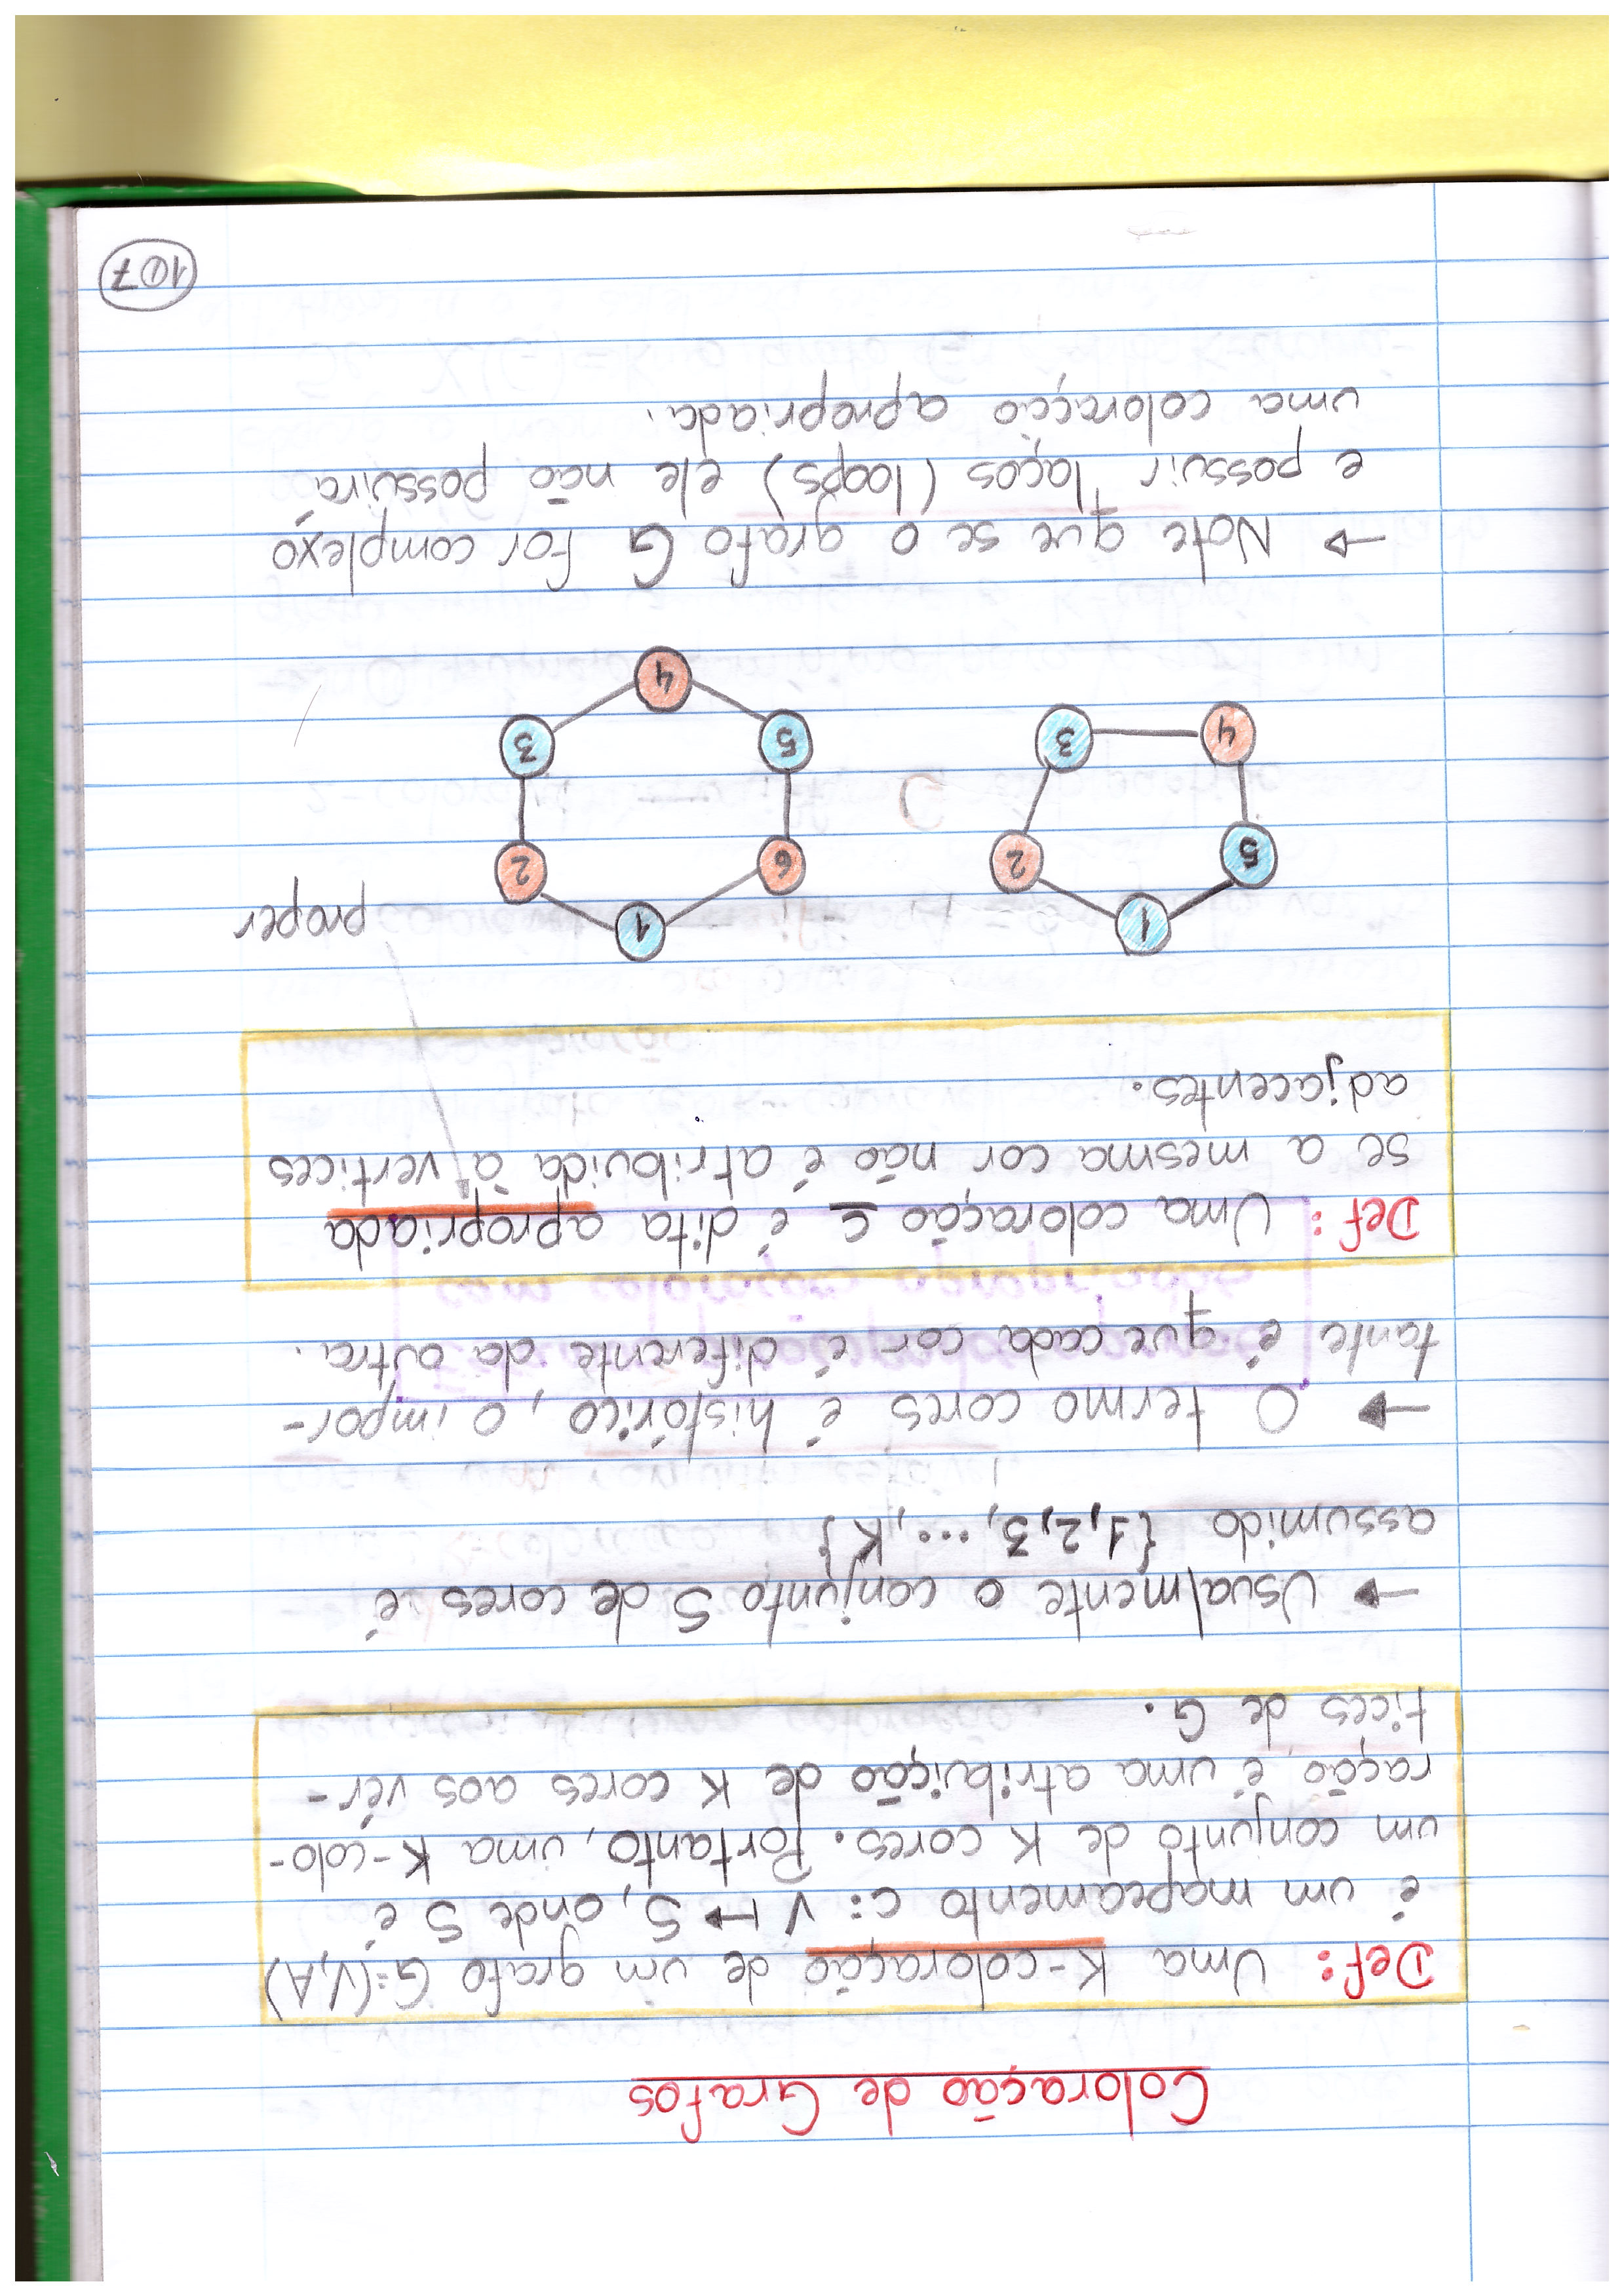 Coloração de Grafos
Def: Uma K-coloração de um grafo G=(V,A)
é um mapeamento c: V ↦ S, onde S é
um conjunto de K cores. Portanto, uma K-colo-
ração é uma atribuição de K cores aos vér-
tices de G.
→ Usualmente o conjunto S de cores é
assumido {1,2,3, ..., K}
→ O termo cores é histórico, o impor-
tante é que cada cor é diferente da outra.
Def: Uma coloração c é dita apropriada
se a mesma cor não é atribuida à vertices
adjacentes.
proper
1 2 3 4 5
1 2 3 4 5 6
→ Note que se o grafo G for complexo
e possuir laços (loops) ele não possuirá
uma coloração apropriada.
107